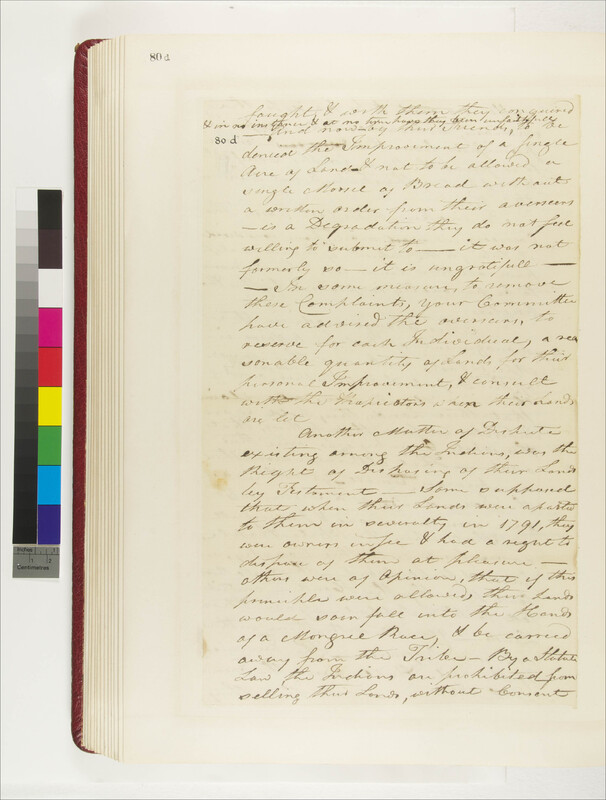 80d
fought, & with them they conquered
& in no instance & at no time have they been unfaithful
80 d
and now by their friends, to be
denied the Improvement of a single
Acre of Land & not to be allowed a
single Morsel of Bread without
a written order from their overseers
— is a Degradation they do not feel
willing to submit to — it was not
formerly so — it is ungratefull —
— In some measure, to remove
these Complaints, your Committee
have advised the overseers, to
reserve for each Individual, a rea
sonable quantity of Lands for their
personal Improvement, & consult
with the Proprietors when their Lands
are let
Another Matter of Dispute
existing among the Indians, was the
Right of Disposing of their Lands
by Testament — Some supposed
that when their Lands were aparted
to them in severalty in 1791, they
were owners in fee & had a right to
dispose of them at pleasure —
others were of Opinion, that if this
principle were allowed, their Lands
would soon fall into the Hands
of a Mongrel Race, & be carried
away from the Tribe — By a Statute
Law the Indians are prohibited from
selling their Lands, without Consent
Inches
1
2
Centimetres